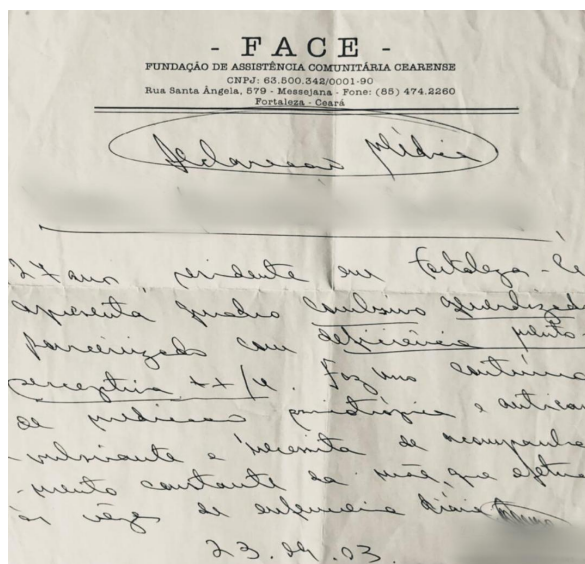 - FACE -
FUNDAÇÃO DE ASSISTÊNCIA COMUNITÁRIA CEARENSE
CNPJ: 63.500.342/0001-90
Rua Santa Ângela, 579 - Messejana - Fone: (85) 474.2260
Fortaleza - Ceará
Declaração Médica
27 anos, residente em Fortaleza-Ce
apresenta quadro convulsivo generalizado
parcializado com deficiência psico-
perceptiva ++/4. Faz uso contínuo
de medicação psicotrópica e anticon
-vulsivante e necessita de acompanha
-mento constante da mãe, que efetua
às vezes de enfermeira
23.09.03.